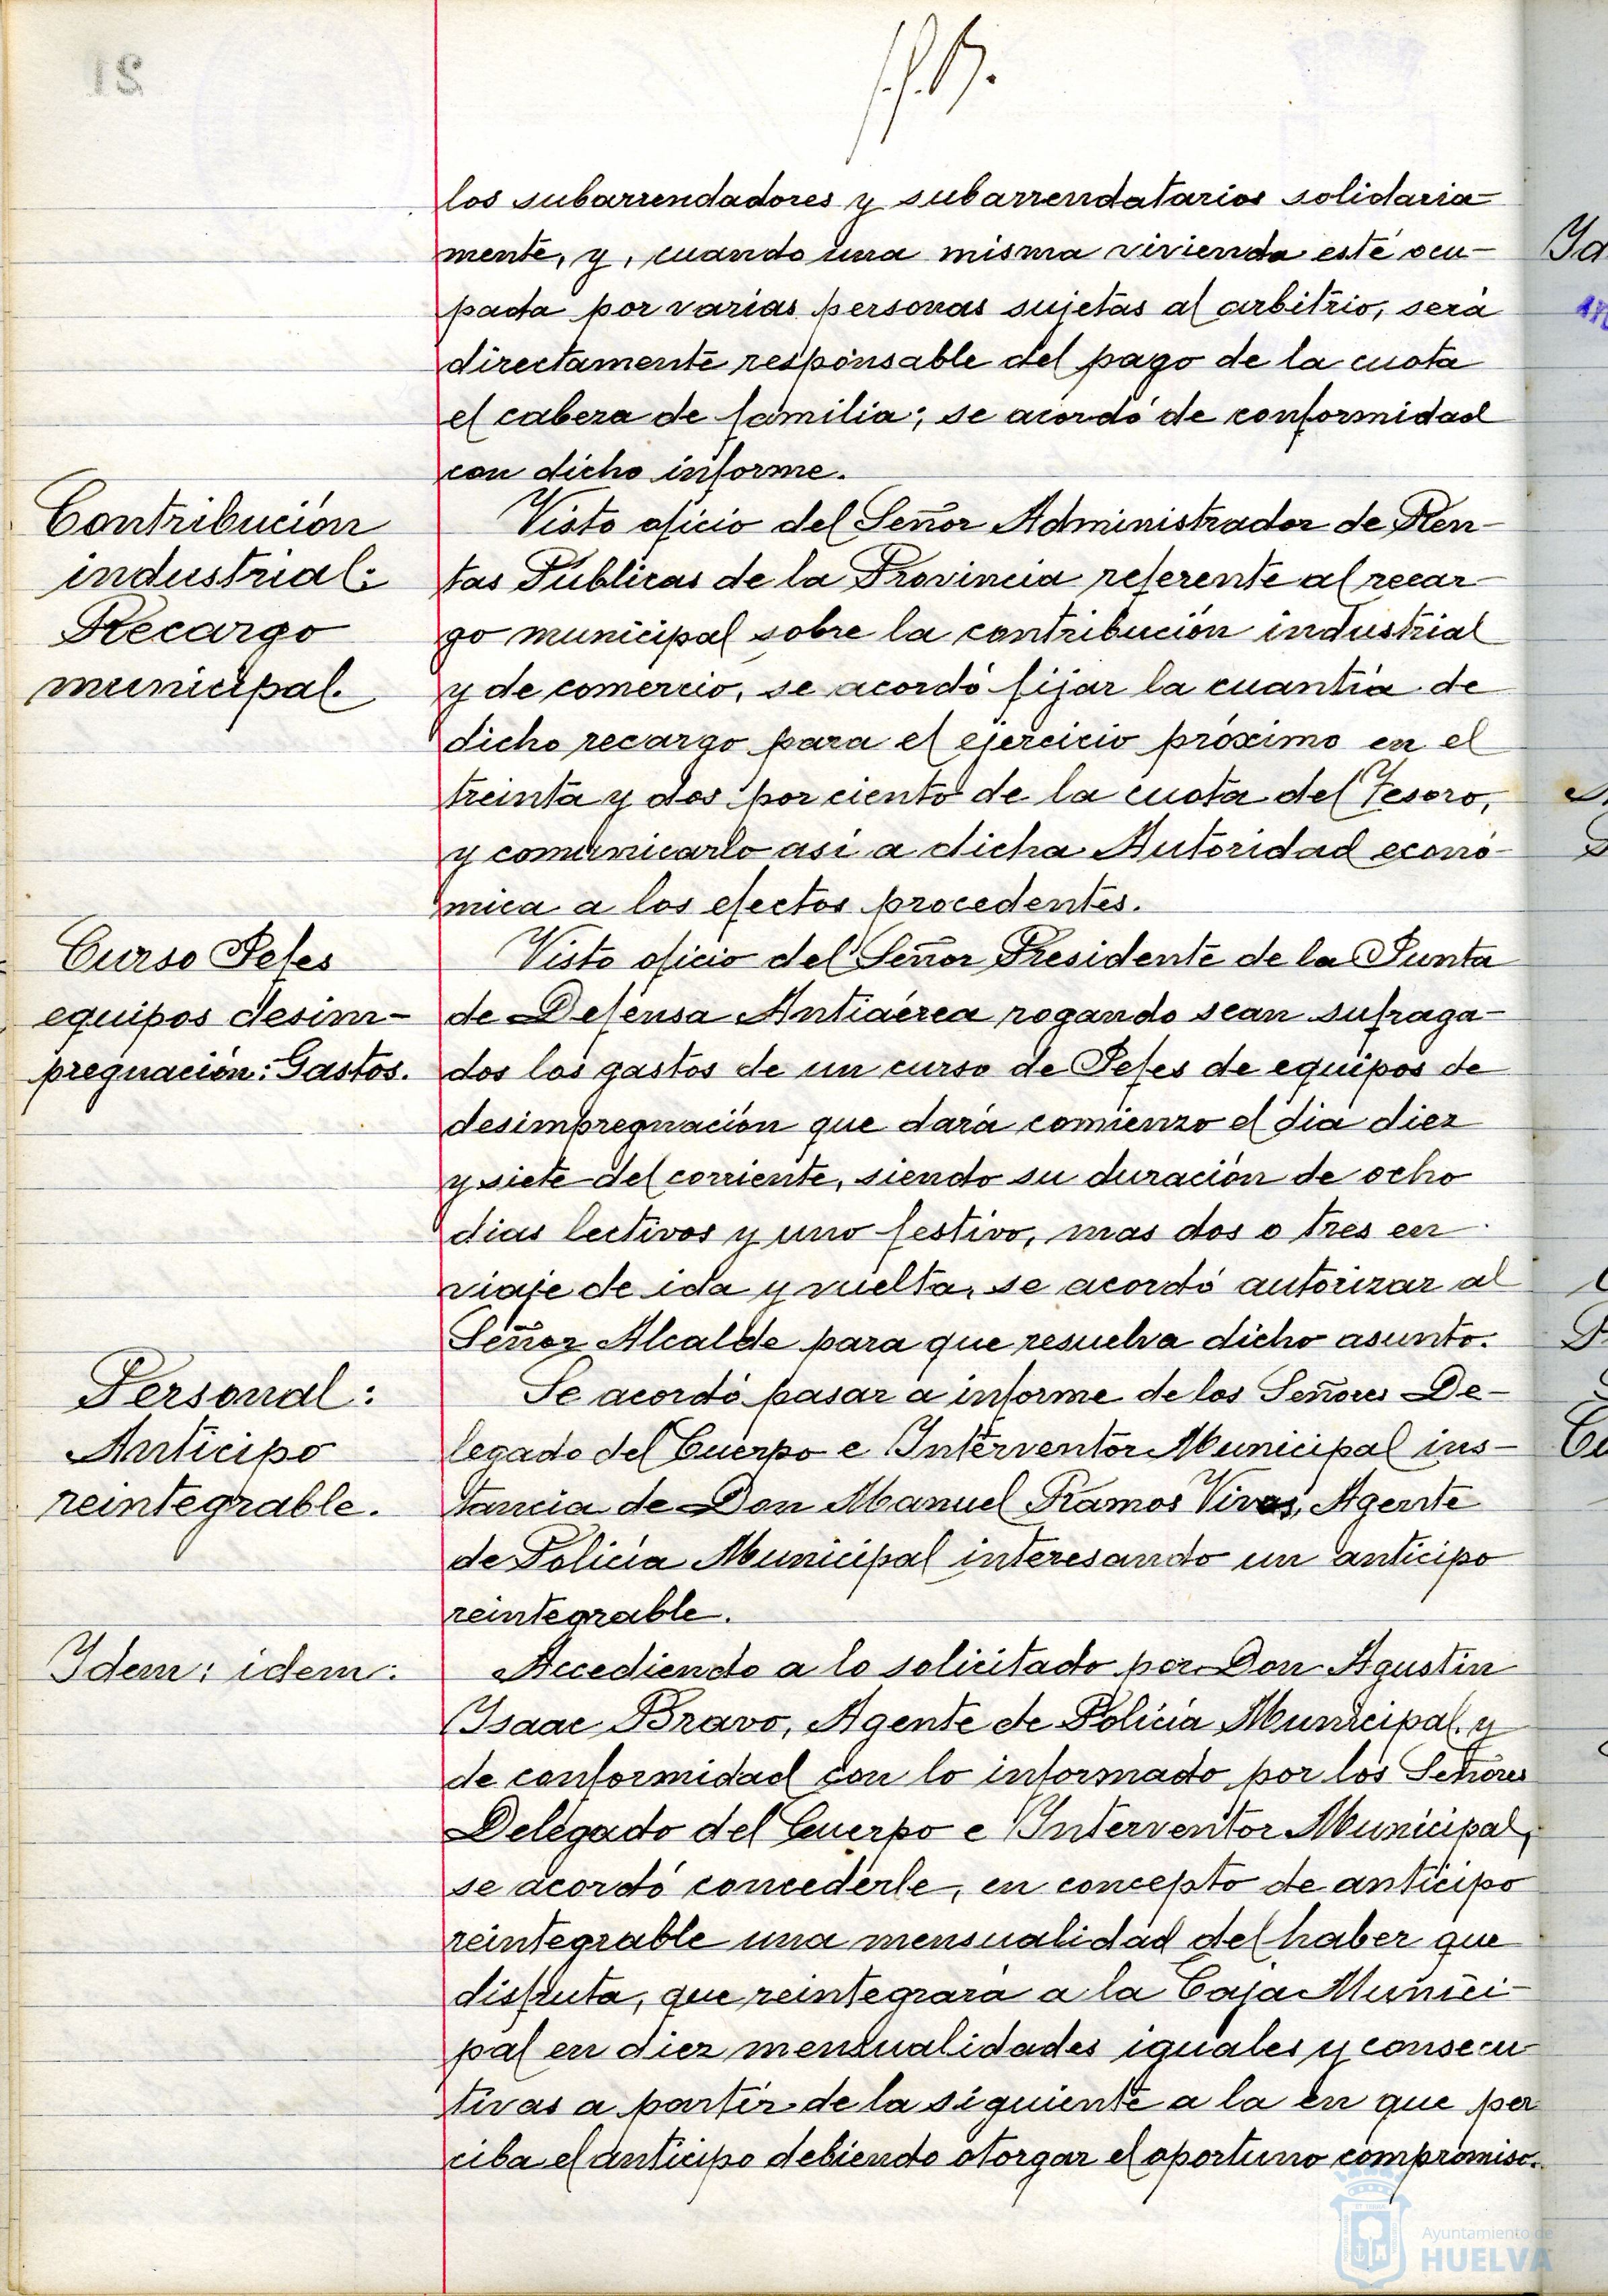 los subarrendadores y subarrendatarios solidaria-
mente, y, cuando una misma vivienda esté ocu-
pada por varias personas sujetas al arbitrio, será
directamente responsable del pago de la cuota
el cabeza de familia; se acordó de conformidad
con dicho informe.
Contribución
industrial:
Recargo
municipal.
Visto oficio del Señor Administrador de Ren-
tas Públicas de la Provincia referente al recar-
go municipal sobre la contribución industrial
y de comercio, se acordó fijar la cuantía de
dicho recargo para el ejercicio próximo en el
treinta y dos por ciento de la cuota del Tesoro,
y comunicarlo así a dicha Autoridad econó-
mica a los efectos procedentes.
Curso Jefes
equipos desim-
pregnación: Gastos.
Visto oficio del Señor Presidente de la Junta
de Defensa Antiaérea rogando sean sufraga-
dos los gastos de un curso de Jefes de equipos de
desimpregnación que dará comienzo el día diez
y siete del corriente, siendo su duración de ocho
dias lectivos y uno festivo, mas dos o tres en
viaje de ida y vuelta, se acordó autorizar al
Señor Alcalde para que resuelva dicho asunto.
Personal:
Anticipo
reintegrable.
Se acordó pasar a informe de los Señores De-
legado del Cuerpo e Interventor Municipal ins-
tancia de Don Manuel Ramos Vivas, Agente
de Policía Municipal interesando un anticipo
reintegrable.
Idem: idem:
Accediendo a lo solicitado por Don Agustín
Isaac Bravo, Agente de Policía Municipal y
de conformidad con lo informado por los Señores
Delegado del Cuerpo e Interventor Municipal,
se acordó concederle, en concepto de anticipo
reintegrable una mensualidad del haber que
disfruta, que reintegrará a la Caja Munici-
pal en diez mensualidades iguales y consecu-
tivas a partir de la siguiente a la en que per
ciba el anticipo debiendo otorgar el oportuno compromiso.
Ayuntamiento de
HUELVA